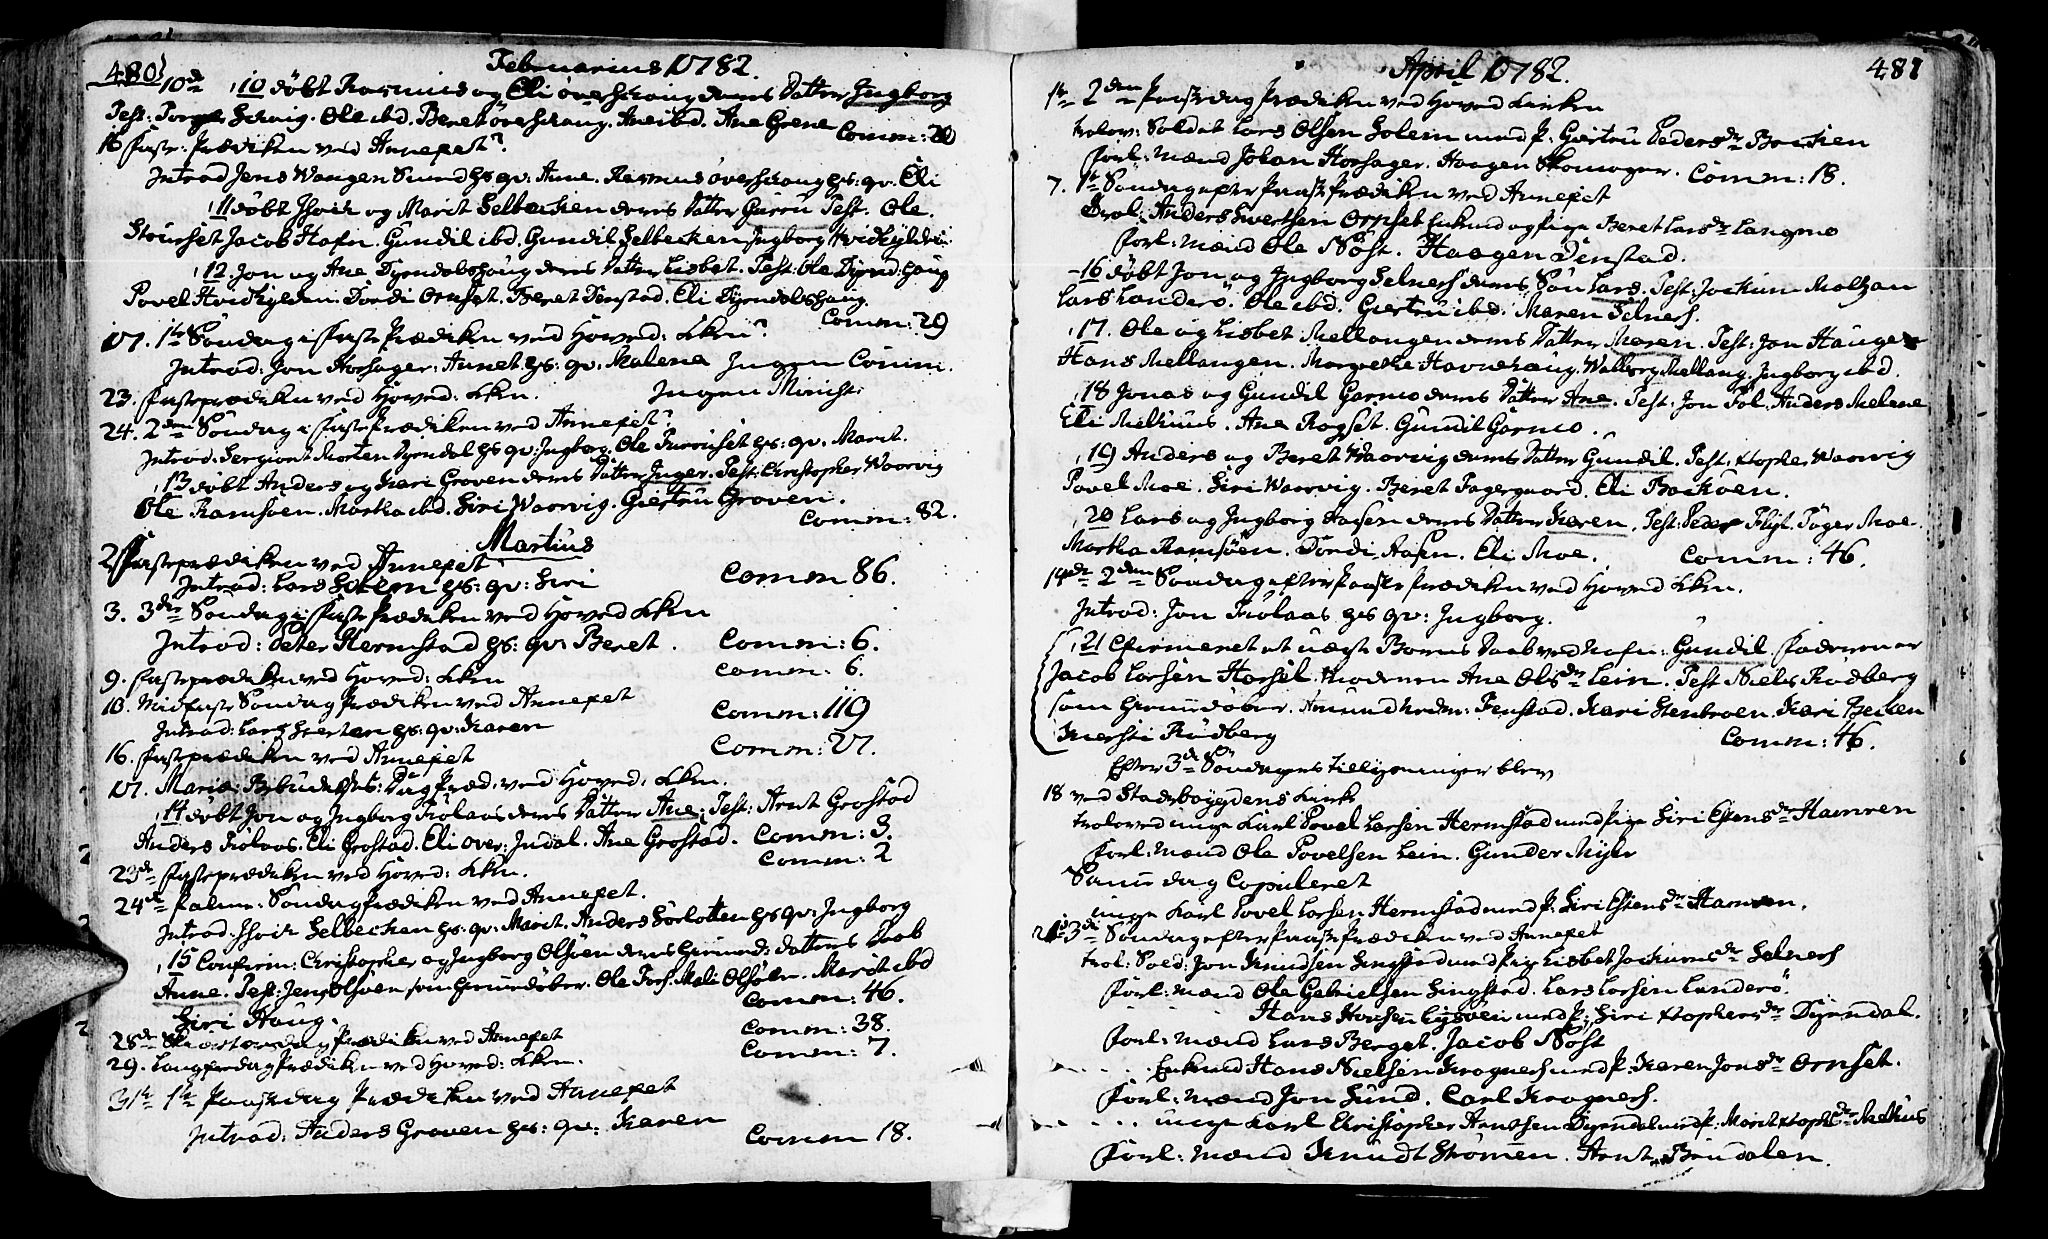 480
Februarius 1782.
10de ,10 döbt Rasmus og Eli överhaug deres Datter Ingborg
Test: Ole ibd. Beret överhaug. Ane ibd. Ane Grene Comm: 20
16 Faste-Prædiken ved Annexet.
Introd Jens Wangen Sund hs: qv: Anne. Rasmus överhaug hs: qv. Eli
,11 döbt og Marit Selbechen deres Datter Guru Test. Ole
Stourset Jacob Hafn. Gundil ibd. Gundil Selbechen Ingborg
,12. Jon og Ane Dyrndalshaug deres Datter Lisbet. Test: Ole Dyrnd: haug
Povel Hvidkylden. Dordi Ornset. Beret Denstad. Eli Dyrndalshaug.
Comm: 29
17. 1te Söndag i Faste Prædiken ved Hoved: Kken
Introd: Jon Korsager: Annet hs: qv. Malena Ingen Comm.
23. Fasteprædiken ved Hoved: Kken. Ingen Minist:
24. 2den Söndag i Faste Prædiken ved Annexet.
Introd: Sergiant Morten Dyrndal hs qv: Ingborg. Ole Furruset hs: qv. Marit.
,13 döbt Anders og Kari Groven deres Datter Inger. Test: Christopher Woorvig
Ole Ramsöen. Martha ibd. Siri Woorvig. Giertru Groven.
Comm: 82.
Martius
2 Fasteprædiken ved Annexet
Introd: Lars Solem hs: qv: Siri Comm 86.
3. 3die Söndag i Faste Prædiken ved Hoved Kken
Introd: Peter Hermstad hs: qv: Beret. Comm: 6.
9. Fasteprædiken ved Hoved: Kken Comm: 6.
10. Midfaste Söndag Prædiken ved Annexet
Introd: Lars hs: qv: Karen Comm: 119
16. Fasteprædiken ved Annexet Comm: 27.
17. Mariæ Bebudelses: Dag Præd: ved Hoved: Kken.
,14 döbt Jon og Ingborg Fiölaas deres Datter Ane. Test: Arnt Grostad
Anders Fiölaas. Eli Grostad. Eli over: Indal. Ane Grostad. Comm: 3.
Comm: 2
23de Fasteprædiken ved Hoved: Kken.
24de Palme: Söndag Prædiken ved Annexet.
Introd: Selbechen hs: qv: Marit. Anders Sörlotten hs qv: Ingborg
,15 Confirm: Christopher og Ingborg Olsöen deres Datters Daab
Anne. Test: Jens Olsöen som Ole Fors. Mali Olsöen. Marit ibd
Siri Haug. Comm: 46.
28de Skiertorsdag Prædiken ved Annexet Comm: 38.
29. Langfredag Prædiken ved Hoved: Kken. Comm: 7.
31te 1te Paaskedag Prædiken ved Annexet
Introd: Anders Groven hs: qv: Karen
Comm 18.
April 1782.
481
1te 2den Paaskedag Prædiken ved Hoved Kirken
trolov: Soldat Lars Olsen Solem med P: Giertru Pedersdr Bachen
Forl: Mænd Johan Korsager. Haagen Skomager. Comm: 18.
7. 1te Söndag efter Paaske Prædiken ved Annexet
Trol: Anders Ornset Enkmd og Pige Beret Larsdr Langmo
Forl: Mænd Ole Nöst. Haagen Denstad.
,16 döbt Jon og Ingborg Selness deres Sön Lars. Test: Jochim Moltzan
Lars Landerö. Ole ibd. Giertru ibd. Maren Selness.
,17. Ole og Lisbet Mellangen deres Datter Maren. Test: Jon Haugen
Hans Mellangen. Margrethe Havnehaug. Walborg Mellang. Ingborg ibd.
,18 Jonas og Gundil Garmo deres Datter Ane. Test: Jon Fol. Anders Melene
Eli Melhuus. Ane Rogset. Gundil Garmo.
,19 Anders og Beret Woorvig deres Datter Gundil. Test: Xtopher Woorvig
Povel Moe. Siri Woorvig. Beret Fagergaard. Eli Backoen.
,20 Lars og Ingborg deres Datter Karen. Test: Peder Flyt. Töger Moe.
Martha Ramsöen. Dordi Hafn. Eli Moe. Comm: 46.
14de 2den Söndag efter Paaske Prædiken ved Hoved Kken.
Introd: Jon Fiölaas hs qv: Ingborg.
,21 et uægte Barns Daab ved Nafn: Gundil. Faderen er
Jacob Larsen Horsöl. Moderen Ane Olsdr Lein. Test Niels Rödberg
som Amund Fenstad. Kari Stenbroen. Kari Becken
Kiersti Rödberg Comm: 46.
Efter 3de Söndagers Tillysninger blev
18 ved Stadsboygdens Kirke
troloved unge Karl Povel Larsen Hermstad med Pige Siri Estensdr Hamren
Forl: Mænd Ole Povelsen Lein. Gunder Myhr
Samme dag Copuleret
unge Karl Povel Larsen Hermstad med P: Siri Estensdr Hamren.
21 3die Söndag efter Paaske Prædiken ved Annexet
trol: Sold: Jon Knudsen Singstad med Pige Lisbet Jochumsdr Selness
Forl: Mænd Ole Gabrielsen Singstad. Lars Larsen Landerö.
Hans Hansen Lysöen med P: Siri Xtophersdr Dyrndal.
Forl: Mænd Lars Berget. Jacob Nöst
Enkmd Hans Nielsen Krogness med P: Karen Jonsdr Ornset.
Forl: Mænd Jon Sund. Carl Krogness.
unge Karl Christopher Arntsen Dyrndal med P: Marit Xtophdr Melhus
Forl: Mænd Knudt Strömen. Arnt Brudalen.